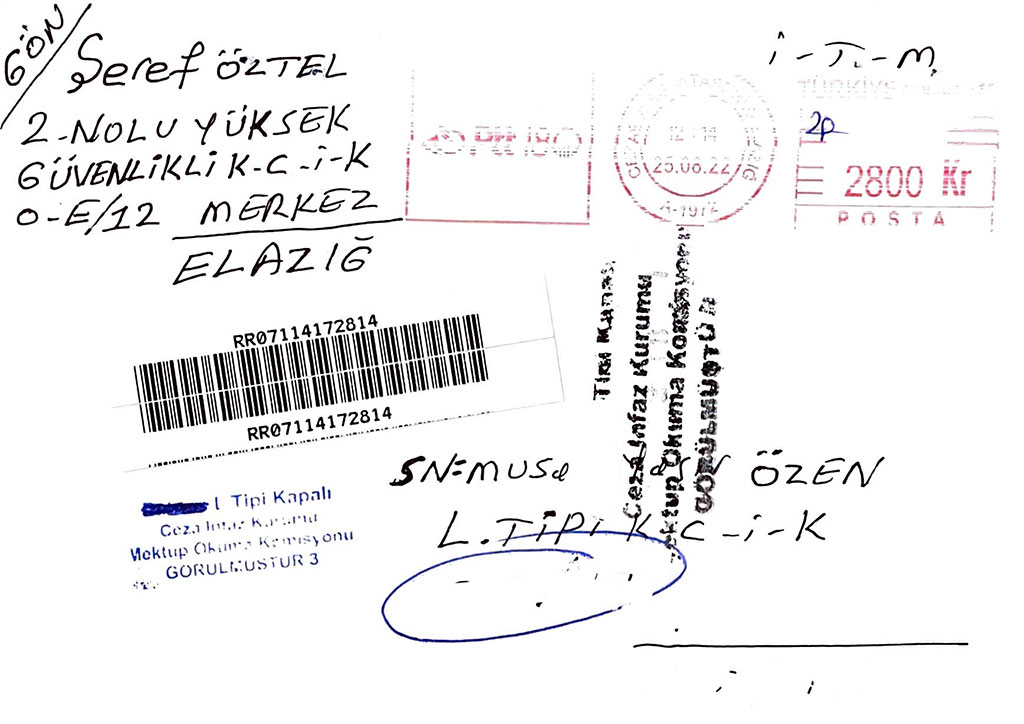 GÖN
Şeref ÖZTEL
2-NOLU YÜKSEK
GÜVENLİKLİ K-C-İ-K
O-E/12 MERKEZ
ELAZIĞ
İ-T-M
TÜRKİYE
2P
2800 Kr
POSTA
12-14
25.08.22
RR07114172814
RR07114172814
Tipi Kapalı
Ceza İnfaz Kurumu
Mektup Okuma Komisyonu
GÖRÜLMÜŞTÜR
SN=MUSa ÖZEN
L. TİPİ K-C-İ-K
L Tipi Kapalı
Ceza İnfaz Kurumu
Mektup Okuma Komisyonu
GÖRÜLMÜSTUR 3